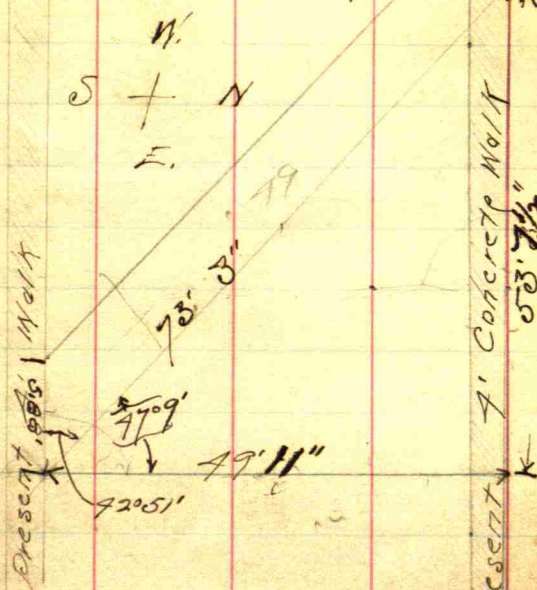 W.
S N
E.
49
73' 3"
47°9'
49' 11"
42°51'
5.88'
Present Walk
esent 4' Concrete Walk
53' 7½"